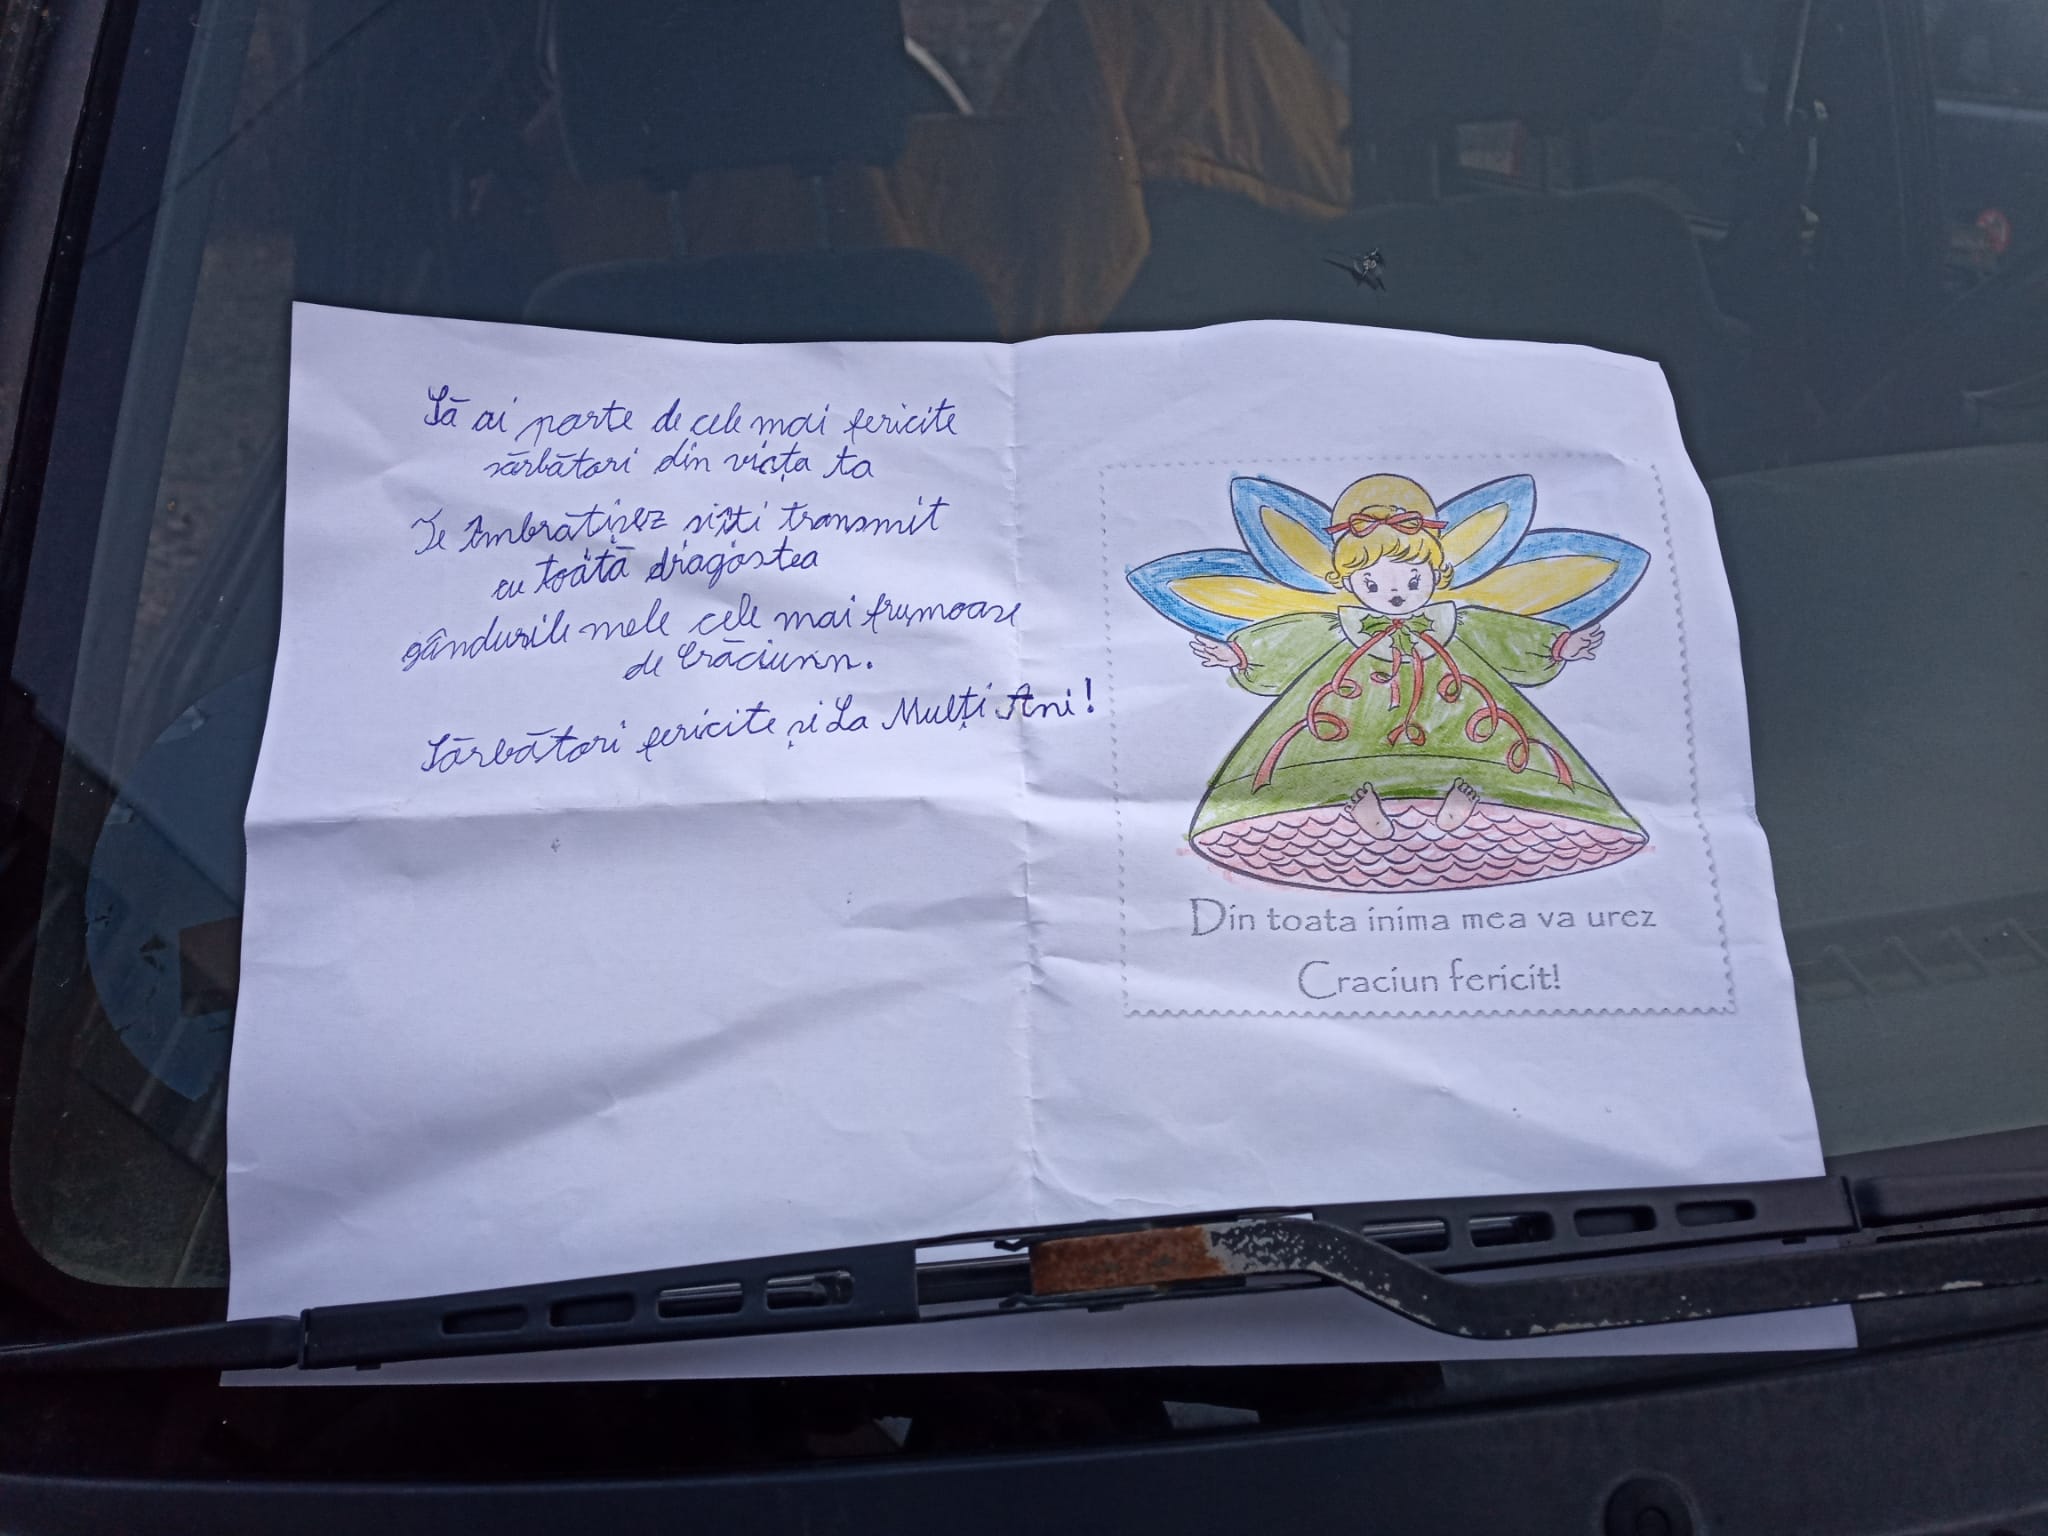 Să ai parte de cele mai fericite
sărbători din viața ta
Te îmbrățișez și îți transmit
cu toată dragostea
gândurile mele cele mai frumoase
de Crăciunn.
Sărbători fericite și La Mulți Ani!
Din toata inima mea va urez
Craciun fericit!